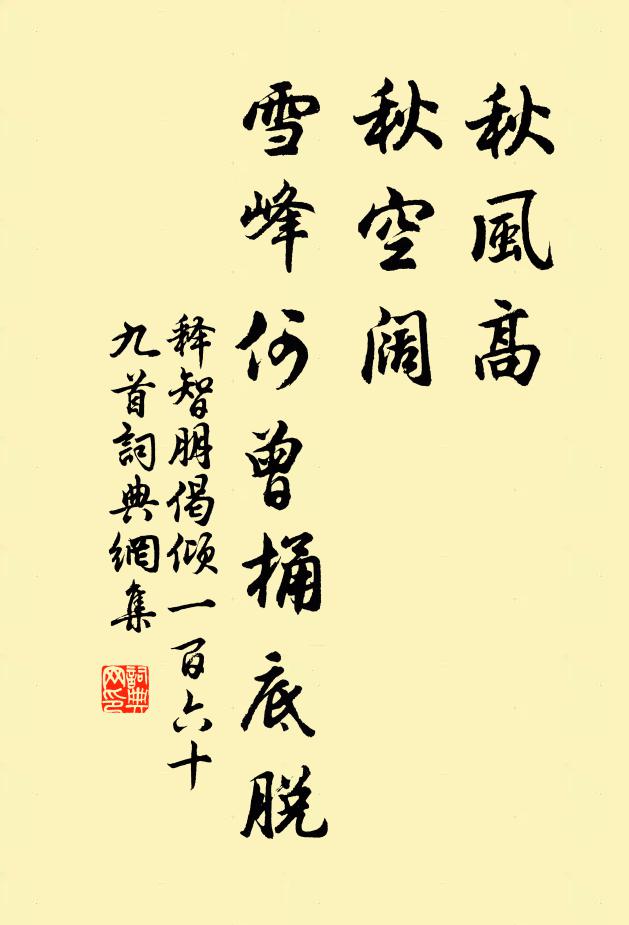 秋風高
秋空阔
雪峰何曾桶底脱
释智朋偈倾一百六十
九首詞典網集
詞典
网印